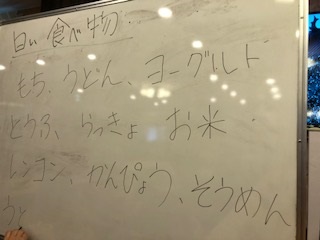 白い食べ物‥
もち、うどん、ヨーグルト
とうふ、らっきょ お米
レンコン、かんぴょう、そうめん
う